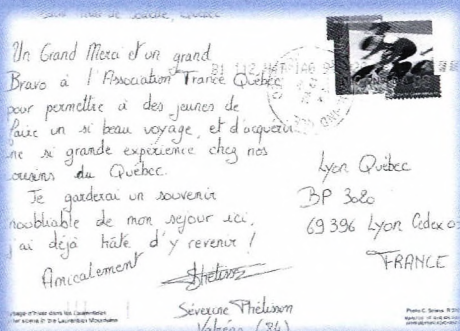 Un Grand Merci et un grand
Bravo à l'Association France Québec
pour permettre à des jeunes de
faire un si beau voyage, et d'acquérir
ne si grande expérience chez nos
cousins du Québec.
Je garderai un souvenir
noubliable de mon séjour ici,
j'ai déjà hâte d'y revenir !
Amicalement
Séverine Phélisson
(84)
Lyon Québec
BP 3020
69396 Lyon Cedex 0
FRANCE
dans les Laurentides
in the Laurentian Mountains